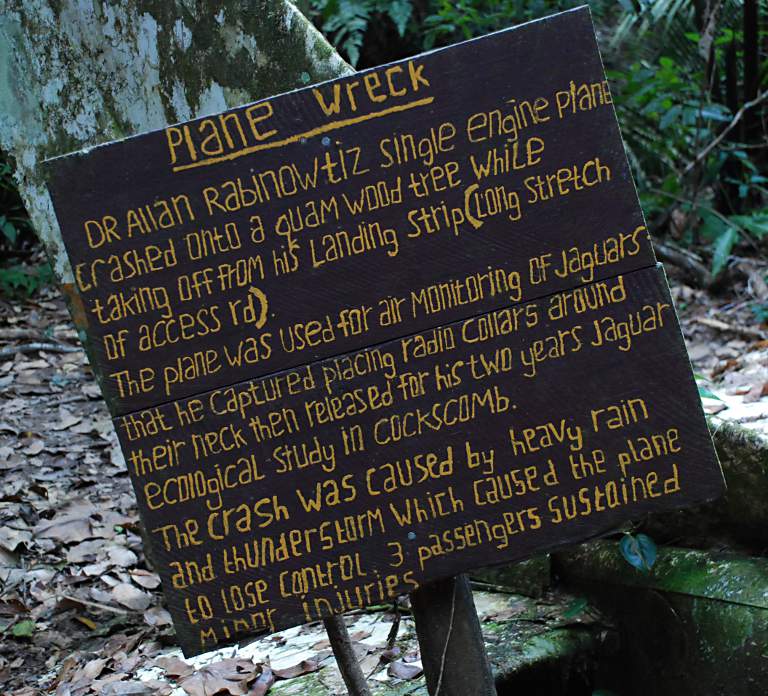 Plane Wreck
DR Allan Rabinowtiz single engine plane
crashed onto a quam wood tree while
taking off from his landing strip (Long stretch
of access rd).
The plane was used for air monitoring of Jaguars
that he captured placing radio collars around
their neck then released for his two years Jaguar
ecological study in COCKSCOMB.
The crash was caused by heavy rain
and thunderstorm which caused the plane
to lose control. 3 passengers sustained
Minor injuries